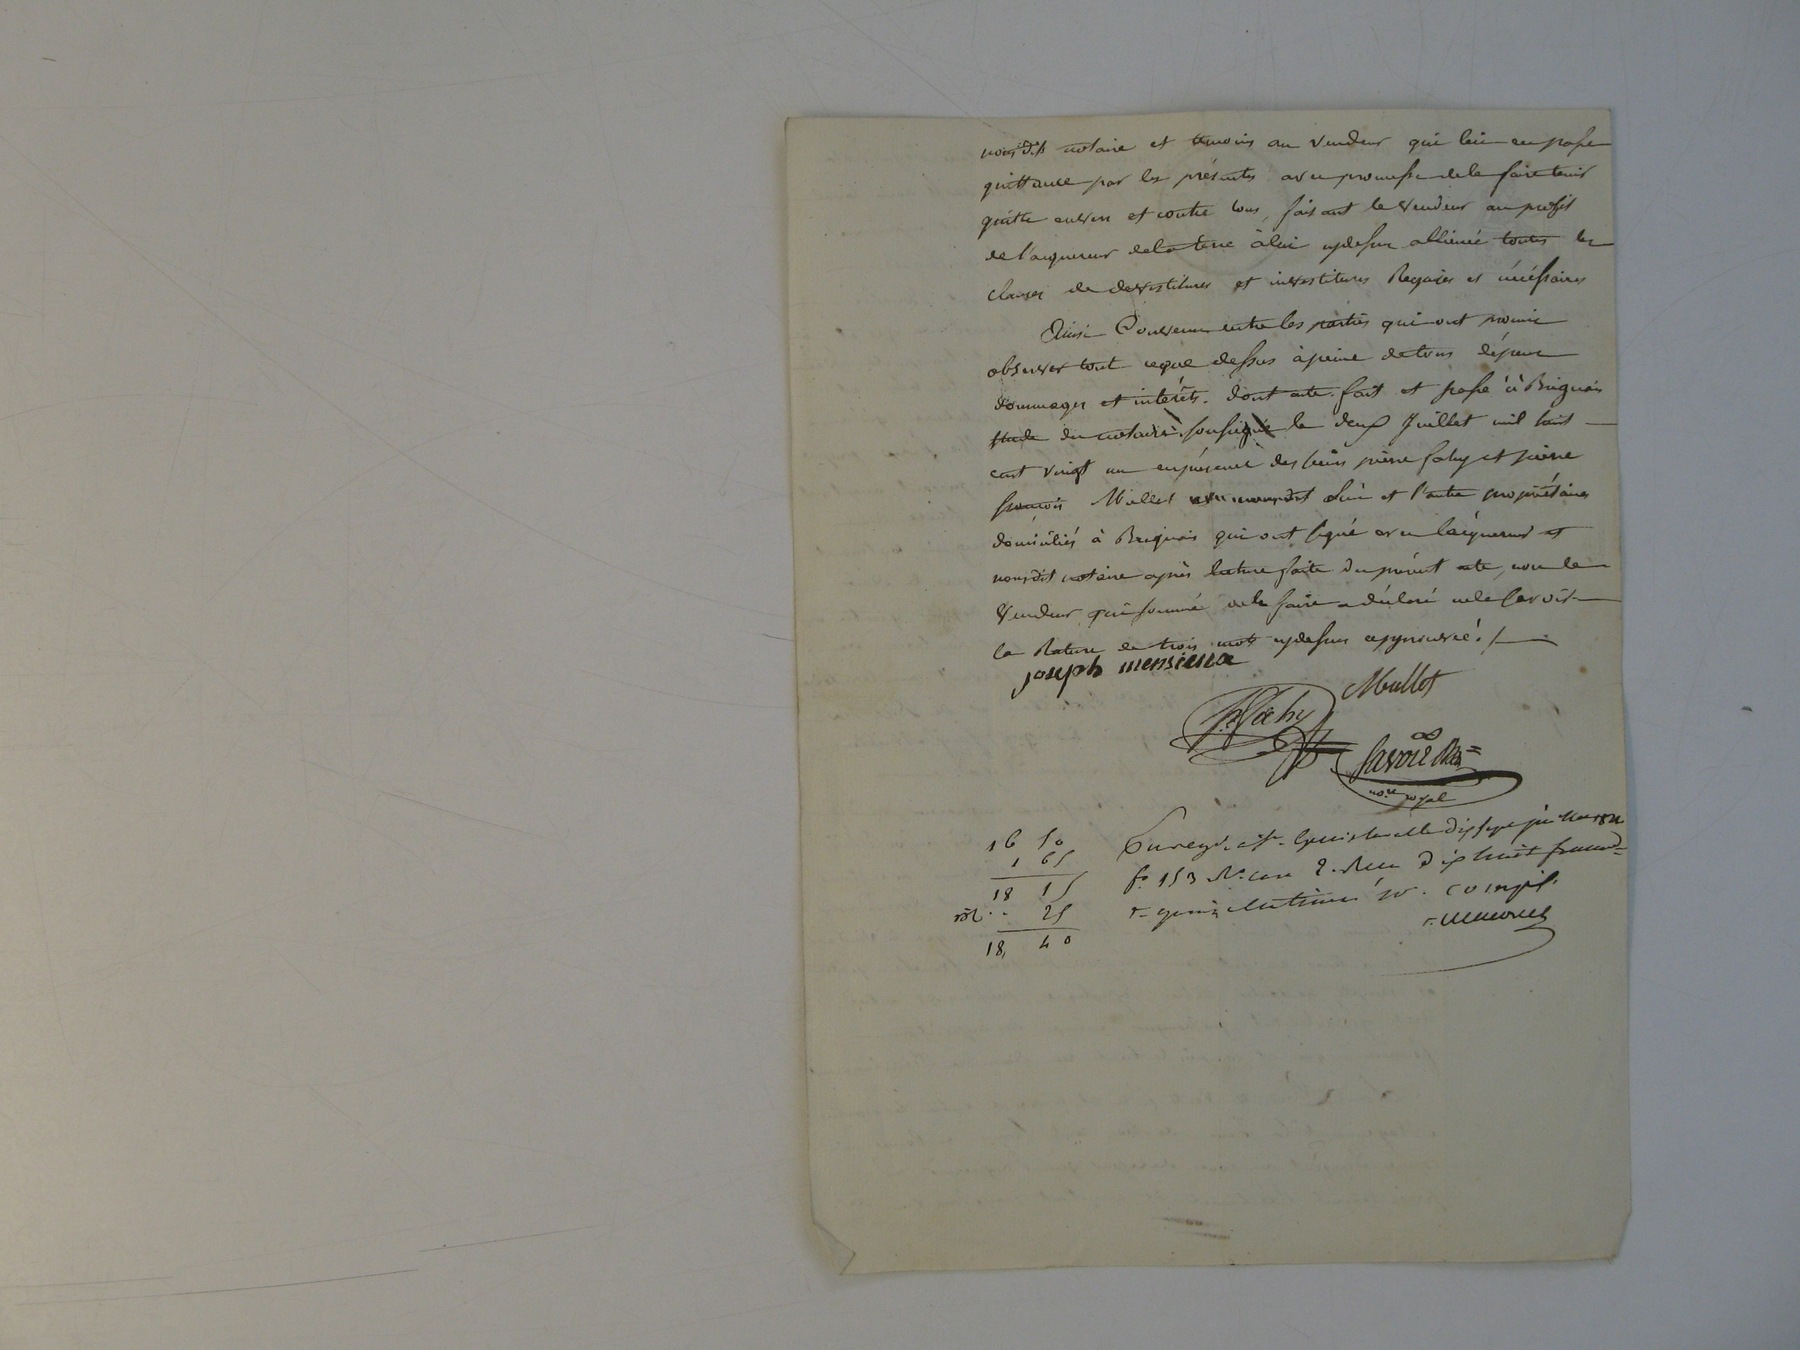 nousdit notaire et temoins au vendeur qui lui en passe
quittance par les présentes avec promesse de le faire tenir
quitte envers et contre tous, faisant le vendeur au profit
de l'acquereur de la terre à lui cydessus alliénée toutes les
clauses de devestitures et investitures Requises et nécéssaires
Ainsi Convenu entre les parties qui ont promis
observer tout ceque dessus à peine de tous dépens
dommages et intérêts. dont acte fait et passé à Brignais
étude du notaire soussigné le deux Juillet mil huit
cent vingt un en présence des sieurs pierre fahy et pierre
françois Mallet l'un et l'autre propriétaires
domiciliés à Brignais qui ont signé avec l'acquereur et
nousdit notaire après lecture faite du présent acte, non le
vendeur qui sommé de le faire a déclaré ne le savoir
la Rature de trois mots cydessus approuvée ./.
joseph
Mallet
P. fahy
not. royal
16 50
1 65
18 15
25
18, 40
fo. 153 Reçu dix huit francs
quinze centimes